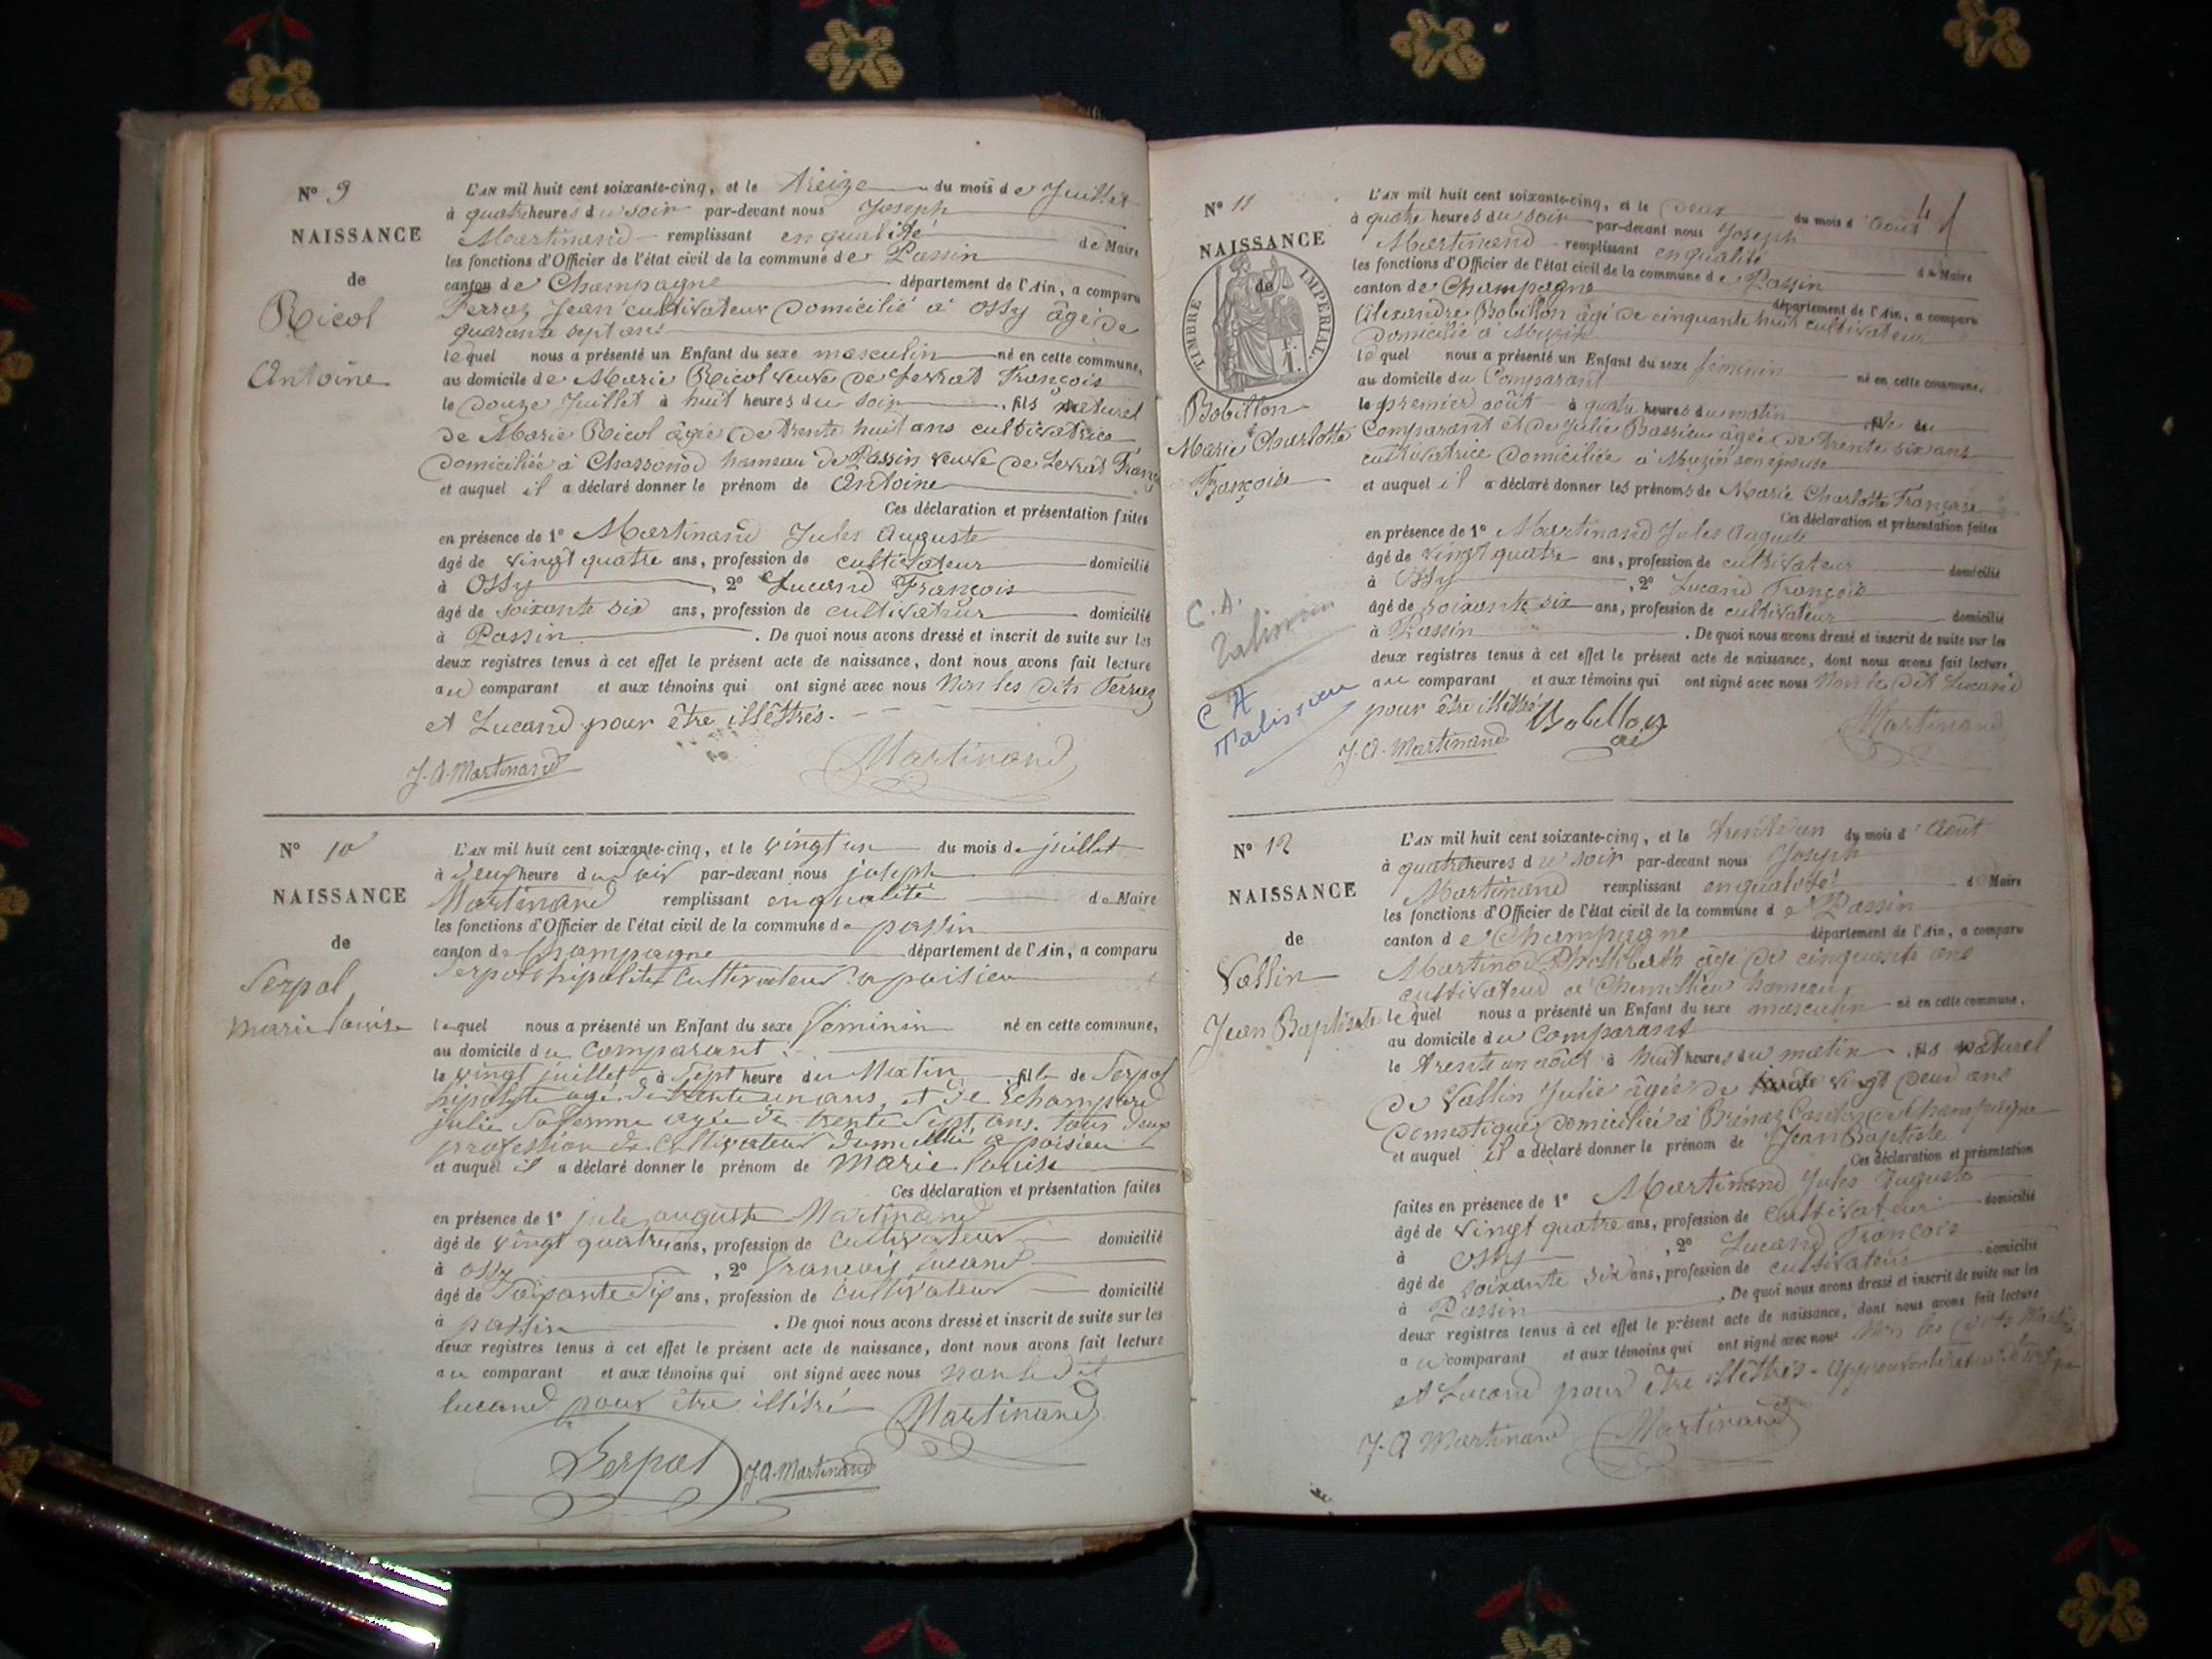 N° 9
NAISSANCE
de
Ricol
Antoine
L'AN mil huit cent soixante-cinq, et le treize du mois de Juillet
à quatre heures du soir par-devant nous Joseph
Martinand remplissant en qualité de Maire
les fonctions d'Officier de l'état civil de la commune de Passin
canton de Champagne département de l'Ain, a comparu
Ferraz Jean cultivateur domicilié à Ossy âgé de
quarante sept ans
lequel nous a présenté un Enfant du sexe masculin né en cette commune,
au domicile de Marie Ricol veuve de Levrat François
le douze Juillet à huit heures du soir, fils naturel
de Marie Ricol âgée de trente huit ans cultivatrice
domiciliée à Chassonod hameau de Passin veuve de Levrat Franç
et auquel il a déclaré donner le prénom de Antoine
Ces déclaration et présentation faites
en présence de 1° Martinand Jules Auguste
âgé de vingt quatre ans, profession de cultivateur domicilié
à Ossy, 2° Lucand François
âgé de soixante six ans, profession de cultivateur domicilié
à Passin. De quoi nous avons dressé et inscrit de suite sur les
deux registres tenus à cet effet le présent acte de naissance, dont nous avons fait lecture
au comparant et aux témoins qui ont signé avec nous Non les dits Ferraz
et Lucand pour être illêttrés.
J. A. Martinand Martinand
N° 10
NAISSANCE
de
Serpol
marie louise
L'AN mil huit cent soixante-cinq, et le vingt un du mois de juillet
à heure du soir par-devant nous joseph
Martinand remplissant en qualité de Maire
les fonctions d'Officier de l'état civil de la commune de passin
canton de Champagne département de l'Ain, a comparu
Serpol hipolite Cultivateur a poisieu
lequel nous a présenté un Enfant du sexe feminin né en cette commune,
au domicile du Comparant
le vingt juillet à sept heure du Matin fille de Serpol
hipolyte agé de trente un ans, et de Echampard
julie agée de trente sept ans. tous deux
profession de Cultivateur domicillié a poisieu
et auquel il a déclaré donner le prénom de Marie louise
Ces déclaration et présentation faites
en présence de 1° jule auguste Martinand
âgé de vingt quatre ans, profession de Cultivateur domicilié
à ossy, 2° francois lucand
âgé de Soixante Six ans, profession de Cultivateur domicilié
à passin. De quoi nous avons dressé et inscrit de suite sur les
deux registres tenus à cet effet le présent acte de naissance, dont nous avons fait lecture
au comparant et aux témoins qui ont signé avec nous non le dit
lucand pour être illétré Martinand
Serpol J. A. Martinand
4
N° 11
NAISSANCE
de
TIMBRE IMPERIAL
F. 1.
Bobillon
Marie Charlotte
Françoise
C. A.
Talissieu
C A
Talissieu
L'AN mil huit cent soixante-cinq, et le deux du mois d'août
à quatre heures du soir par-devant nous Joseph
Martinand remplissant en qualité de Maire
les fonctions d'Officier de l'état civil de la commune de Passin
canton de Champagne département de l'Ain, a comparu
Alexandre Bobillon âgé de cinquante huit cultivateur
domicilié à Muzin
lequel nous a présenté un Enfant du sexe féminin né en cette commune,
au domicile du Comparant
le premier août à quatre heures du matin fille du
Comparant et de Julie Bassieu âgée de trente six ans
cultivatrice domiciliée à Muzin son épouse
et auquel il a déclaré donner les prénoms de Marie Charlotte Françoise
Ces déclaration et présentation faites
en présence de 1° Martinand Jules Auguste
âgé de vingt quatre ans, profession de cultivateur domicilié
à Ossy, 2° Lucand François
âgé de soixante six ans, profession de cultivateur domicilié
à Passin. De quoi nous avons dressé et inscrit de suite sur les
deux registres tenus à cet effet le présent acte de naissance, dont nous avons fait lecture
au comparant et aux témoins qui ont signé avec nous Non le dit Lucand
pour être illêttré Bobillon
J. A. Martinand Martinand
N° 12
NAISSANCE
de
Vallin
Jean Baptiste
L'AN mil huit cent soixante-cinq, et le trente un du mois d'Août
à quatre heures du soir par-devant nous Joseph
Martinand remplissant en qualité de Maire
les fonctions d'Officier de l'état civil de la commune de Passin
canton de Champagne département de l'Ain, a comparu
Martinod âgé de cinquante ans
cultivateur à Chemillieu hameau
lequel nous a présenté un Enfant du sexe masculin né en cette commune,
au domicile du Comparant
le trente un août à huit heures du matin, fils naturel
de Vallin Julie âgée de vingt deux ans
domestique domiciliée à Brénaz Canton de Champagne
et auquel il a déclaré donner le prénom de Jean Baptiste
Ces déclaration et présentation
faites en présence de 1° Martinand Jules Auguste
âgé de vingt quatre ans, profession de cultivateur domicilié
à Ossy, 2° Lucand François
âgé de soixante six ans, profession de cultivateur domicilié
à Passin. De quoi nous avons dressé et inscrit de suite sur les
deux registres tenus à cet effet le présent acte de naissance, dont nous avons fait lecture
au comparant et aux témoins qui ont signé avec nous Non les dits
et Lucand pour être illêttrés.
J. A Martinand Martinand